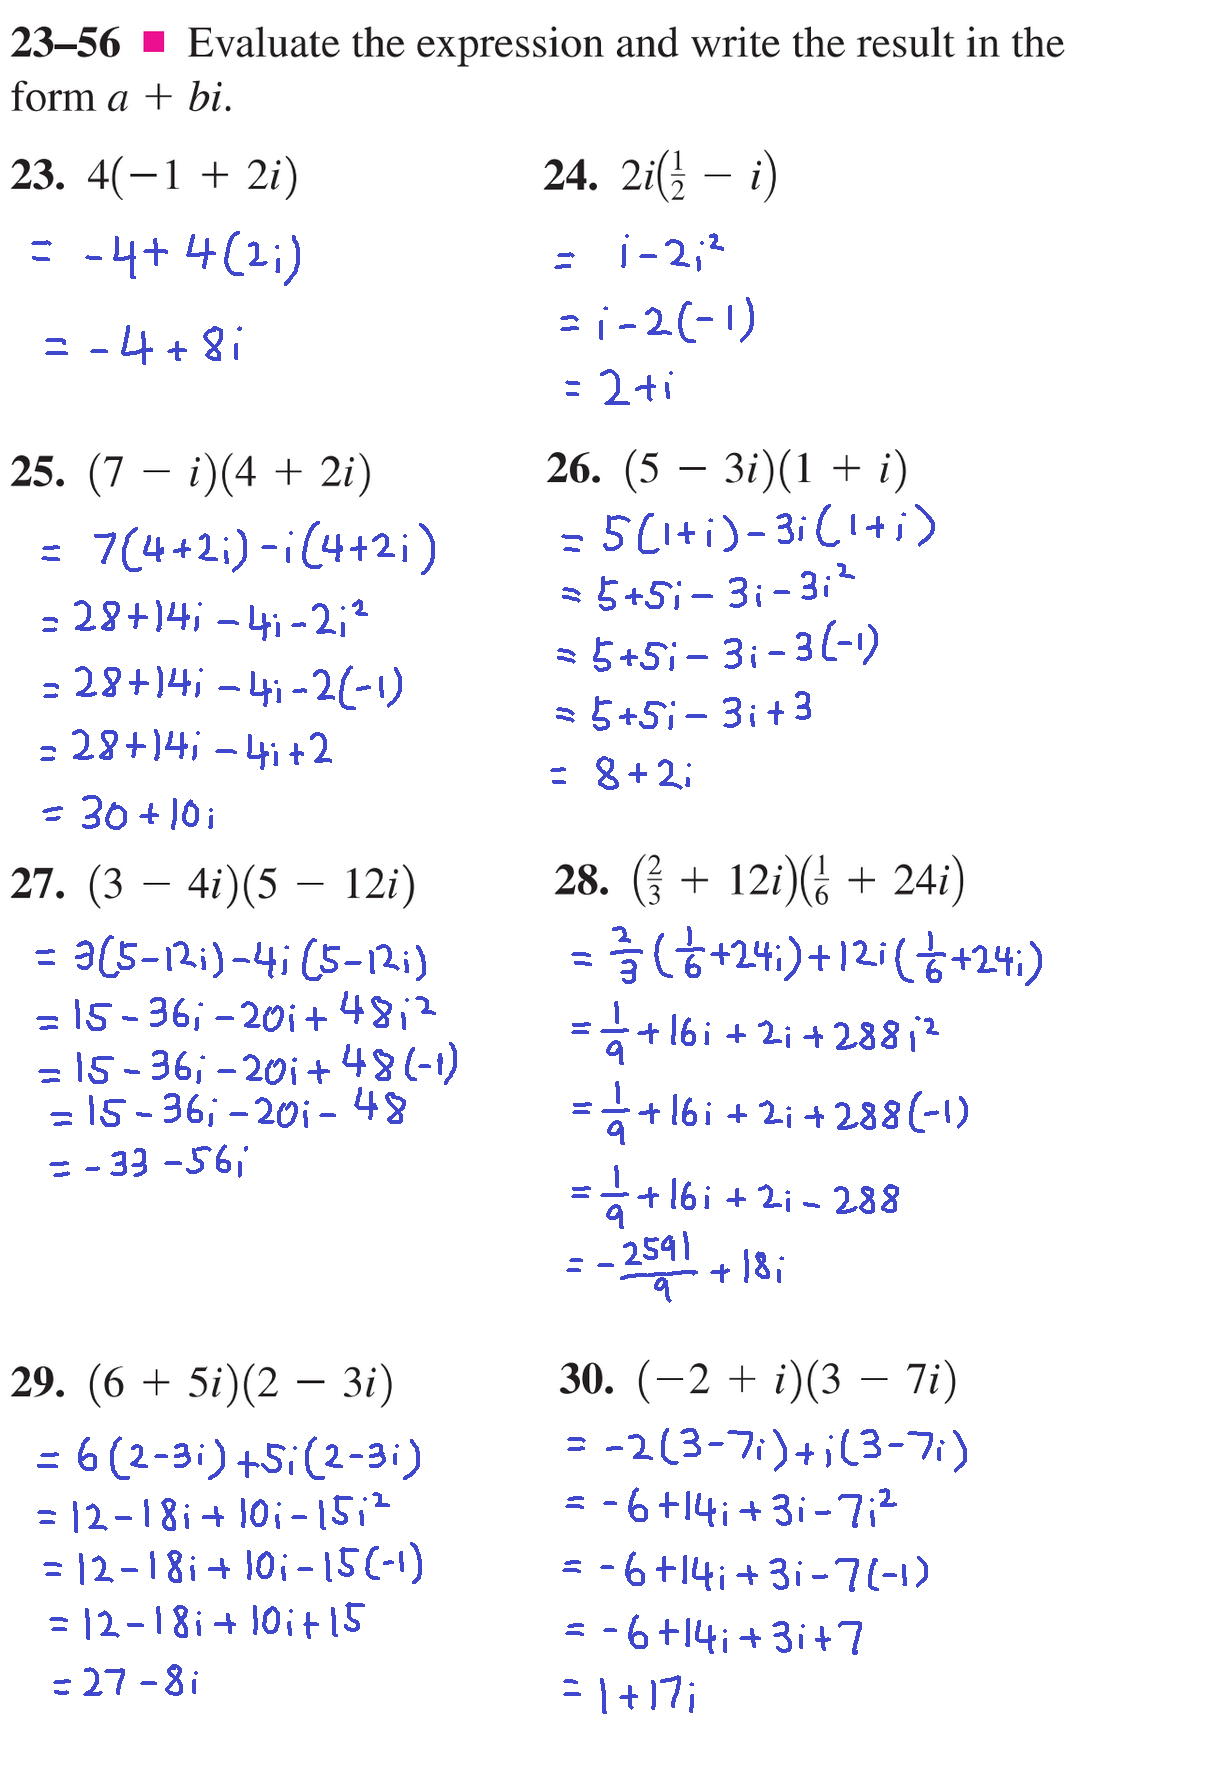 23–56 ■ Evaluate the expression and write the result in the
form a + bi.
23. 4(−1 + 2i)
= -4+ 4(2i)
= -4 + 8i
24. 2i(1/2 − i)
= i-2i²
= i-2(-1)
= 2+i
25. (7 − i)(4 + 2i)
= 7(4+2i)-i(4+2i)
= 28+14i -4i-2i²
= 28+14i -4i-2(-1)
= 28+14i -4i+2
= 30+10i
26. (5 − 3i)(1 + i)
= 5(1+i)-3i(1+i)
= 5+5i- 3i-3i²
= 5+5i- 3i-3(-1)
= 5+5i- 3i+3
= 8+2i
27. (3 − 4i)(5 − 12i)
= 3(5-12i)-4i(5-12i)
= 15-36i-20i+48i²
= 15-36i-20i+48(-1)
= 15-36i-20i-48
= -33-56i
28. (2/3 + 12i)(1/6 + 24i)
= 2/3(1/6+24i)+12i(1/6+24i)
= 1/9+16i+2i+288i²
= 1/9+16i+2i+288(-1)
= 1/9+16i+2i-288
= -2591/9+18i
29. (6 + 5i)(2 − 3i)
= 6(2-3i)+5i(2-3i)
= 12-18i+10i-15i²
= 12-18i+10i-15(-1)
= 12-18i+10i+15
= 27-8i
30. (−2 + i)(3 − 7i)
= -2(3-7i)+i(3-7i)
= -6+14i+3i-7i²
= -6+14i+3i-7(-1)
= -6+14i+3i+7
= 1+17i